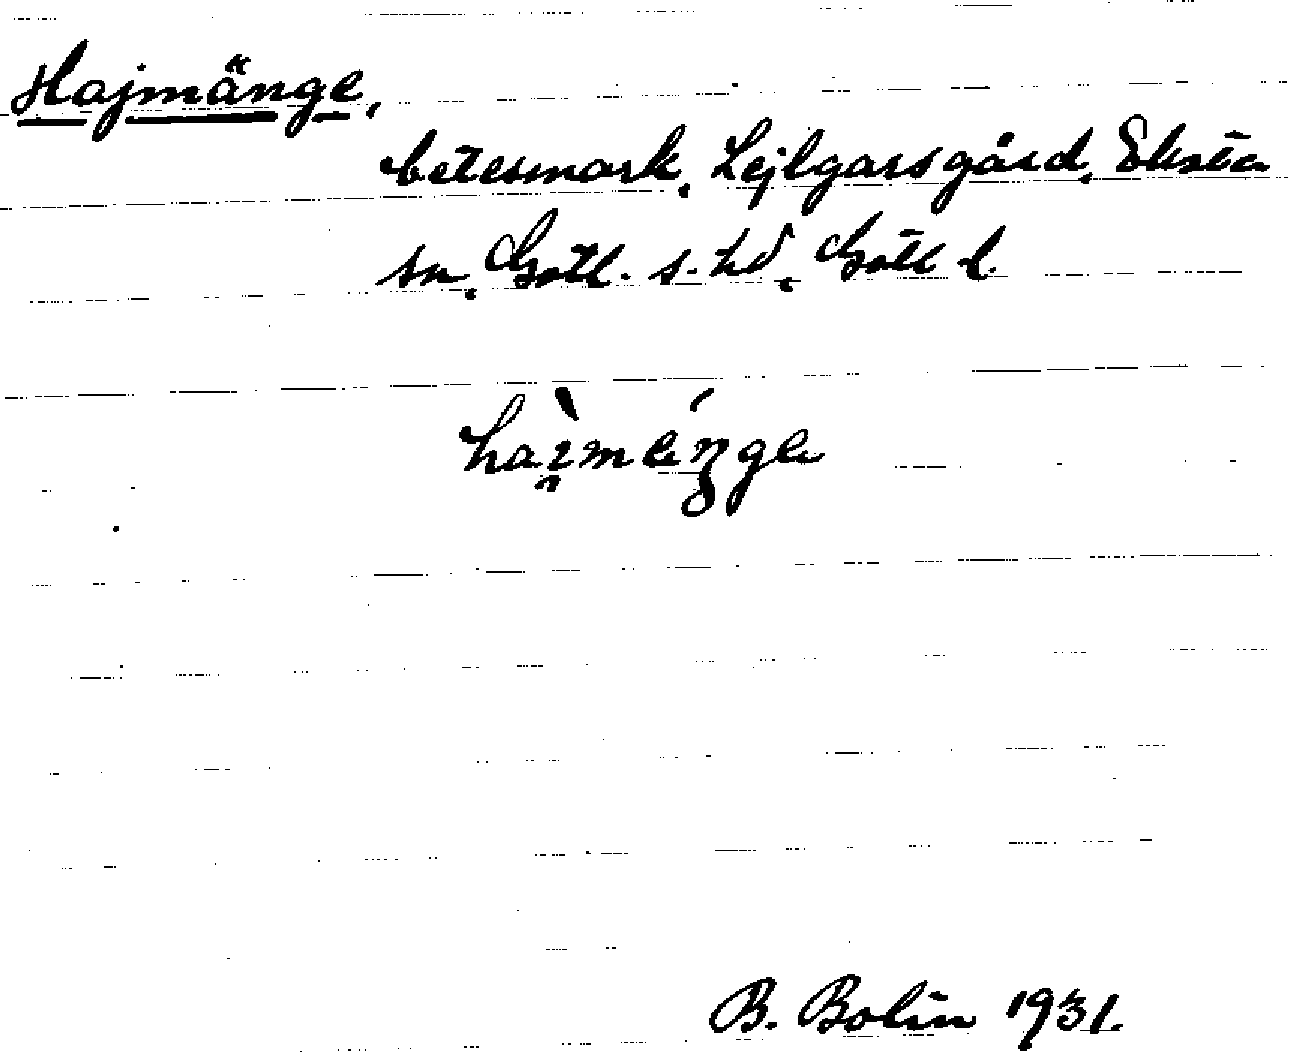 Hajmänge,
betesmark, Lejlgarsgård, Eksta
sn, Gotl. s. hd, Gotl l.
ha̯ìmeńge
B. Bolin 1931.